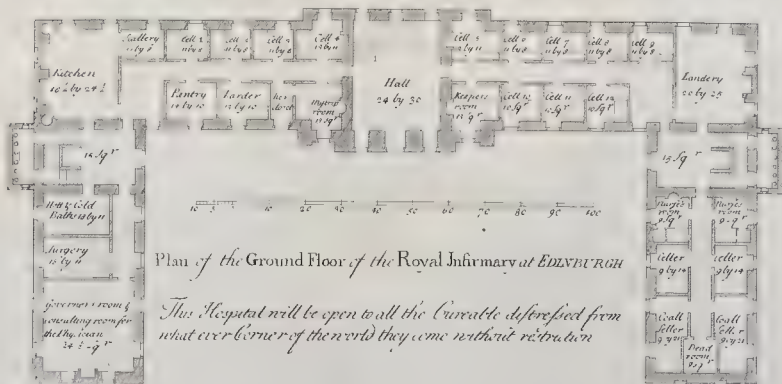 Scallery
11 by 8
Cell 2
11 by 8
Cell
11 by 8
Cell
11 by 8
Cell 4
12 by 11
Cell 5
12 by 11
Cell 6
11 by 8
Cell 7
11 by 8
Cell 8
11 by 8
Cell 9
11 by 8
Kitchen
by 24 ½
Hall
24 by 30
Landery
20 by 25
Pantry
by 10
Larder
12 by 10
room
Keepers
room
12 sqr
Cell 10
10 sqr
Cell 11
10 sqr
Cell 12
10 sqr
Sqr
15 Sqr
Hot & Cold
Baths 18 by 11
Surgery
by 11
Governers room &
consulting room for
the Physician
24 ½ sqr
Nurse's
room
9 sqr
Nurse's
room
9 sqr
Celler
9 by 14
Celler
9 by 14
Coall
Celler
9 by 21
Coall
Celler
9 by 21
Dead
room
9 sqr
10 5 10 20 30 40 50 60 70 80 90 100
Plan of the Ground Floor of the Royal Infirmary at EDINBURGH
This Hospital will be open to all the Cureable distressed from
what ever Corner of the world they come without restriction